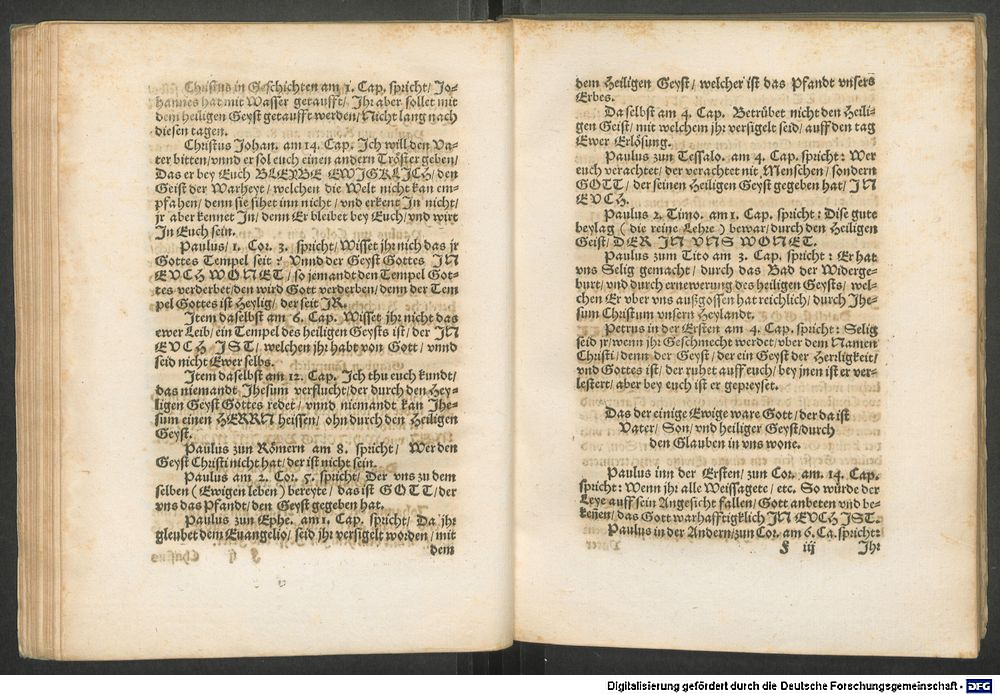 Christus in Geschichten am 1. Cap. spricht/ Jo-
hannes hat mit Wasser getaufft/ Ihr aber sollet mit
dem heiligen Geyst getaufft werden/ Nicht lang nach
diesen tagen.
Christus Johan. am 14. Cap. Ich will den Va-
ter bitten/ vnnd er sol euch einen andern Tröster geben/
Das er bey Euch BLEYBE EWIGKLICH/ den
Geist der Warheyt/ welchen die Welt nicht kan em-
pfahen/ denn sie sihet inn nicht/ vnd erkent In nicht/
jr aber kennet In/ denn Er bleibet bey Euch/ vnd wirt
In Euch sein.
Paulus/ 1. Cor. 3. spricht/ Wisset jhr nich das jr
Gottes Tempel seit? Vnnd der Geyst Gottes IN
EVCH WONET/ so jemandt den Tempel Got-
tes verderbet/ den wird Gott verderben/ denn der Tem
pel Gottes ist Heylig/ der seit IR.
Item daselbst am 6. Cap. Wisset jhr nicht das
ewer Leib/ ein Tempel des heiligen Geysts ist/ der IN
EVCH IST/ welchen jhr habt von Gott/ vnnd
seid nicht Ewer selbs.
Item daselbst am 12. Cap. Ich thu euch kundt/
das niemandt Jhesum verflucht/ der durch den Hey-
ligen Geyst Gottes redet/ vnnd niemandt kan Jhe-
sum einen HERRN heissen/ ohn durch den Heiligen
Geyst.
Paulus zun Römern am 8. spricht/ Wer den
Geyst Christi nicht hat/ der ist nicht sein.
Paulus am 2. Cor. 5. spricht/ Der vns zu dem
selben (Ewigen leben) bereyte/ das ist GOTT/ der
vns das Pfandt/ den Geyst gegeben hat.
Paulus zun Ephe. am 1. Cap. spricht/ Da jhr
gleubet dem Euangelio/ seid jhr versigelt worden/ mit
dem
F ij
dem Heiligen Geyst/ welcher ist das Pfandt vnsers
Erbes.
Daselbst am 4. Cap. Betrübet nicht den Heili-
gen Geist/ mit welchem jhr versigelt seid/ auff den tag
Ewer Erlösung.
Paulus zun Tessalo. am 4. Cap. spricht: Wer
euch verachtet/ der verachtet nit Menschen/ sondern
GOTT/ der seinen Heiligen Geyst gegeben hat/ IN
EVCH.
Paulus 2. Timo. am 1. Cap. spricht: Dise gute
beylag (die reine Lehre) bewar/ durch den Heiligen
Geist/ DER IN VNS WONET.
Paulus zun Tito am 3. Cap. spricht: Er hat
vns Selig gemacht/ durch das Bad der Widerge-
burt/ vnd durch ernewerung des heiligen Geysts/ wel-
chen Er vber vns außgossen hat reichlich/ durch Jhe-
sum Christum vnsern Heylandt.
Petrus in der Ersten am 4. Cap. spricht: Selig
seid jr/ wenn jhr Geschmecht werdet/ vber dem Namen
Christi/ denn der Geyst/ der ein Geyst der Herrligkeit/
vnd Gottes ist/ der ruhet auff euch/ bey jnen ist er ver-
lestert/ aber bey euch ist er gepreyset.
Das der einige Ewige ware Gott/ der da ist
Vater/ Son/ vnd heiliger Geyst/ durch
den Glauben in vns wone.
Paulus inn der Ersten/ zun Cor. am. 14. Cap.
spricht: Wenn jhr alle Weissagete/ etc. So würde der
Leye auff sein Angesicht fallen/ Gott anbeten vnd be-
keñen/ das Gott warhafftigklich IN EVCH IST.
Paulus in der Andern/ zun Cor. am 6. Ca. spricht:
F iij Ihr
Digitalisierung gefördert durch die Deutsche Forschungsgemeinschaft - DFG